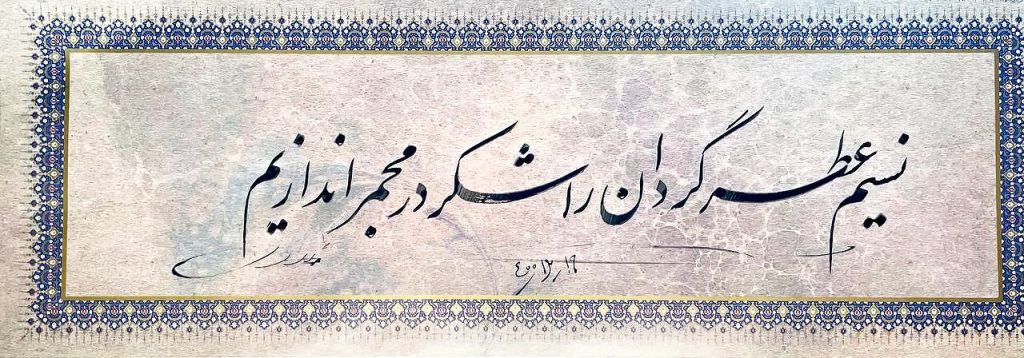 نسیم عطر گردان را شکر در مجمر اندازیم